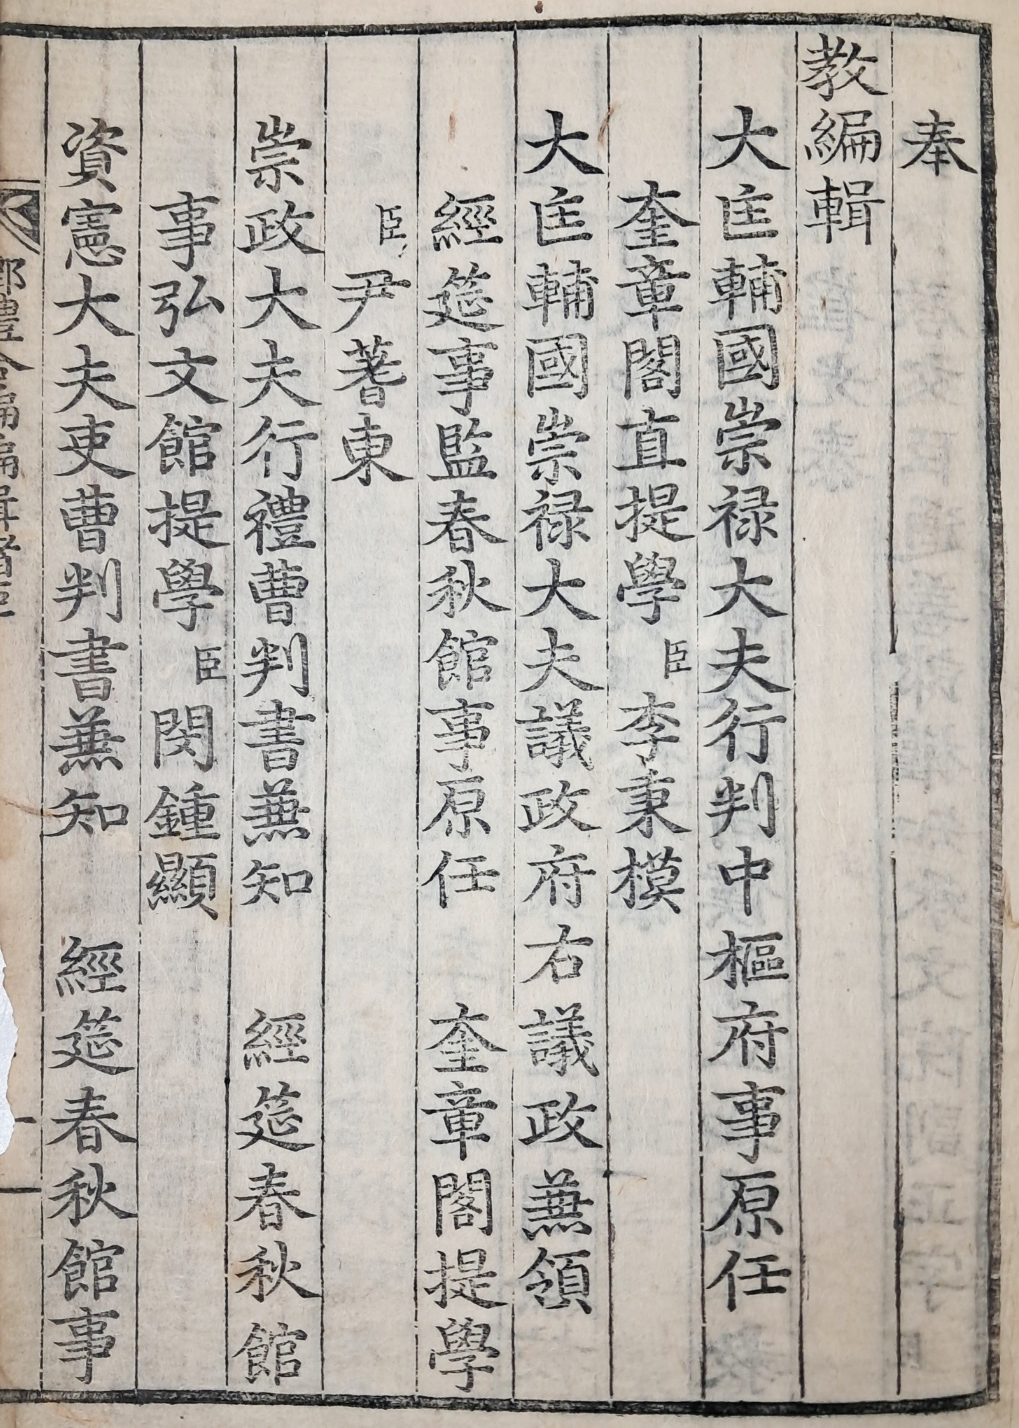 奉
教編輯
大匡輔國崇禄大夫行判中樞府事原任
奎章閣直提學臣李秉模
大匡輔國崇禄大夫議政府右議政兼領
經筵事監春秋館事原任 奎章閣提學
臣尹蓍東
崇政大夫行禮曹判書兼知 經筵春秋館
事弘文館提學臣閔鍾顯
資憲大夫吏曹判書兼知 經筵春秋館事
鄉禮合編編輯諸臣